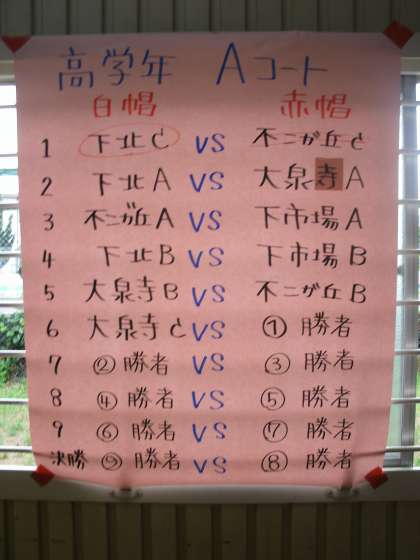 高学年 Aコート
白帽 赤帽
1 下北C VS 不二が丘C
2 下北A VS 大泉寺A
3 不二が丘A VS 下市場A
4 下北B VS 下市場B
5 大泉寺B VS 不二が丘B
6 大泉寺C VS ①勝者
7 ②勝者 VS ③勝者
8 ④勝者 VS ⑤勝者
9 ⑥勝者 VS ⑦勝者
決勝 ⑨勝者 VS ⑧勝者